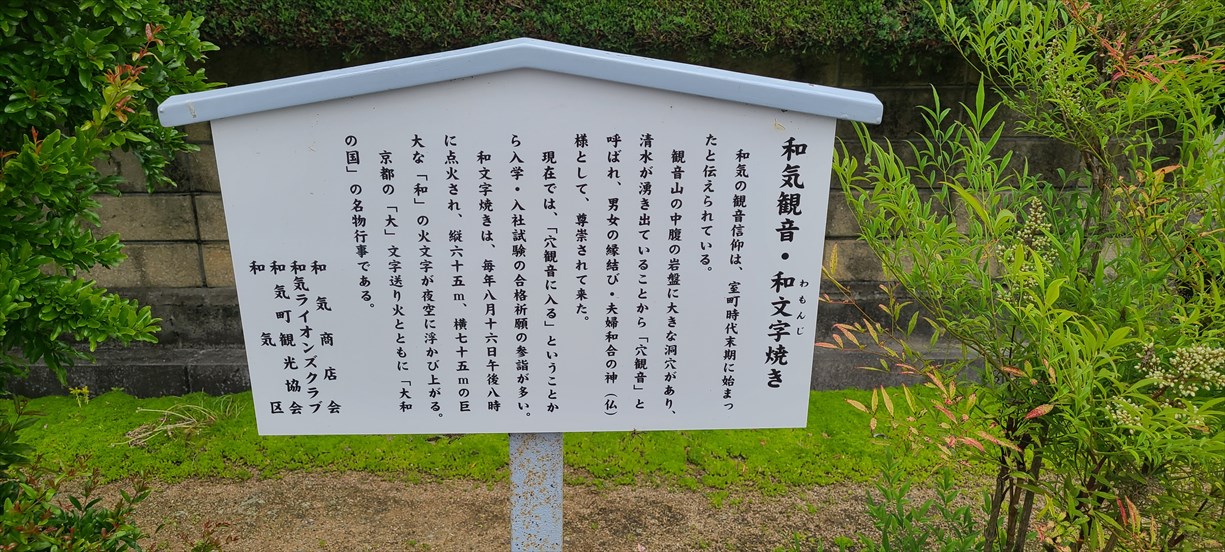 和気観音・和文字焼き
わもんじ
和気の観音信仰は、室町時代末期に始まっ
たと伝えられている。
観音山の中腹の岩盤に大きな洞穴があり、
清水が湧き出ていることから「穴観音」と
呼ばれ、男女の縁結び・夫婦和合の神（仏）
様として、尊崇されて来た。
現在では、「穴観音に入る」ということか
ら入学・入社試験の合格祈願の参詣が多い。
和文字焼きは、毎年八月十六日午後八時
に点火され、縦六十五ｍ、横七十五ｍの巨
大な「和」の火文字が夜空に浮かび上がる。
京都の「大」文字送り火とともに「大和
の国」の名物行事である。
和気商店会
和気ライオンズクラブ
和気町観光協会
和気区